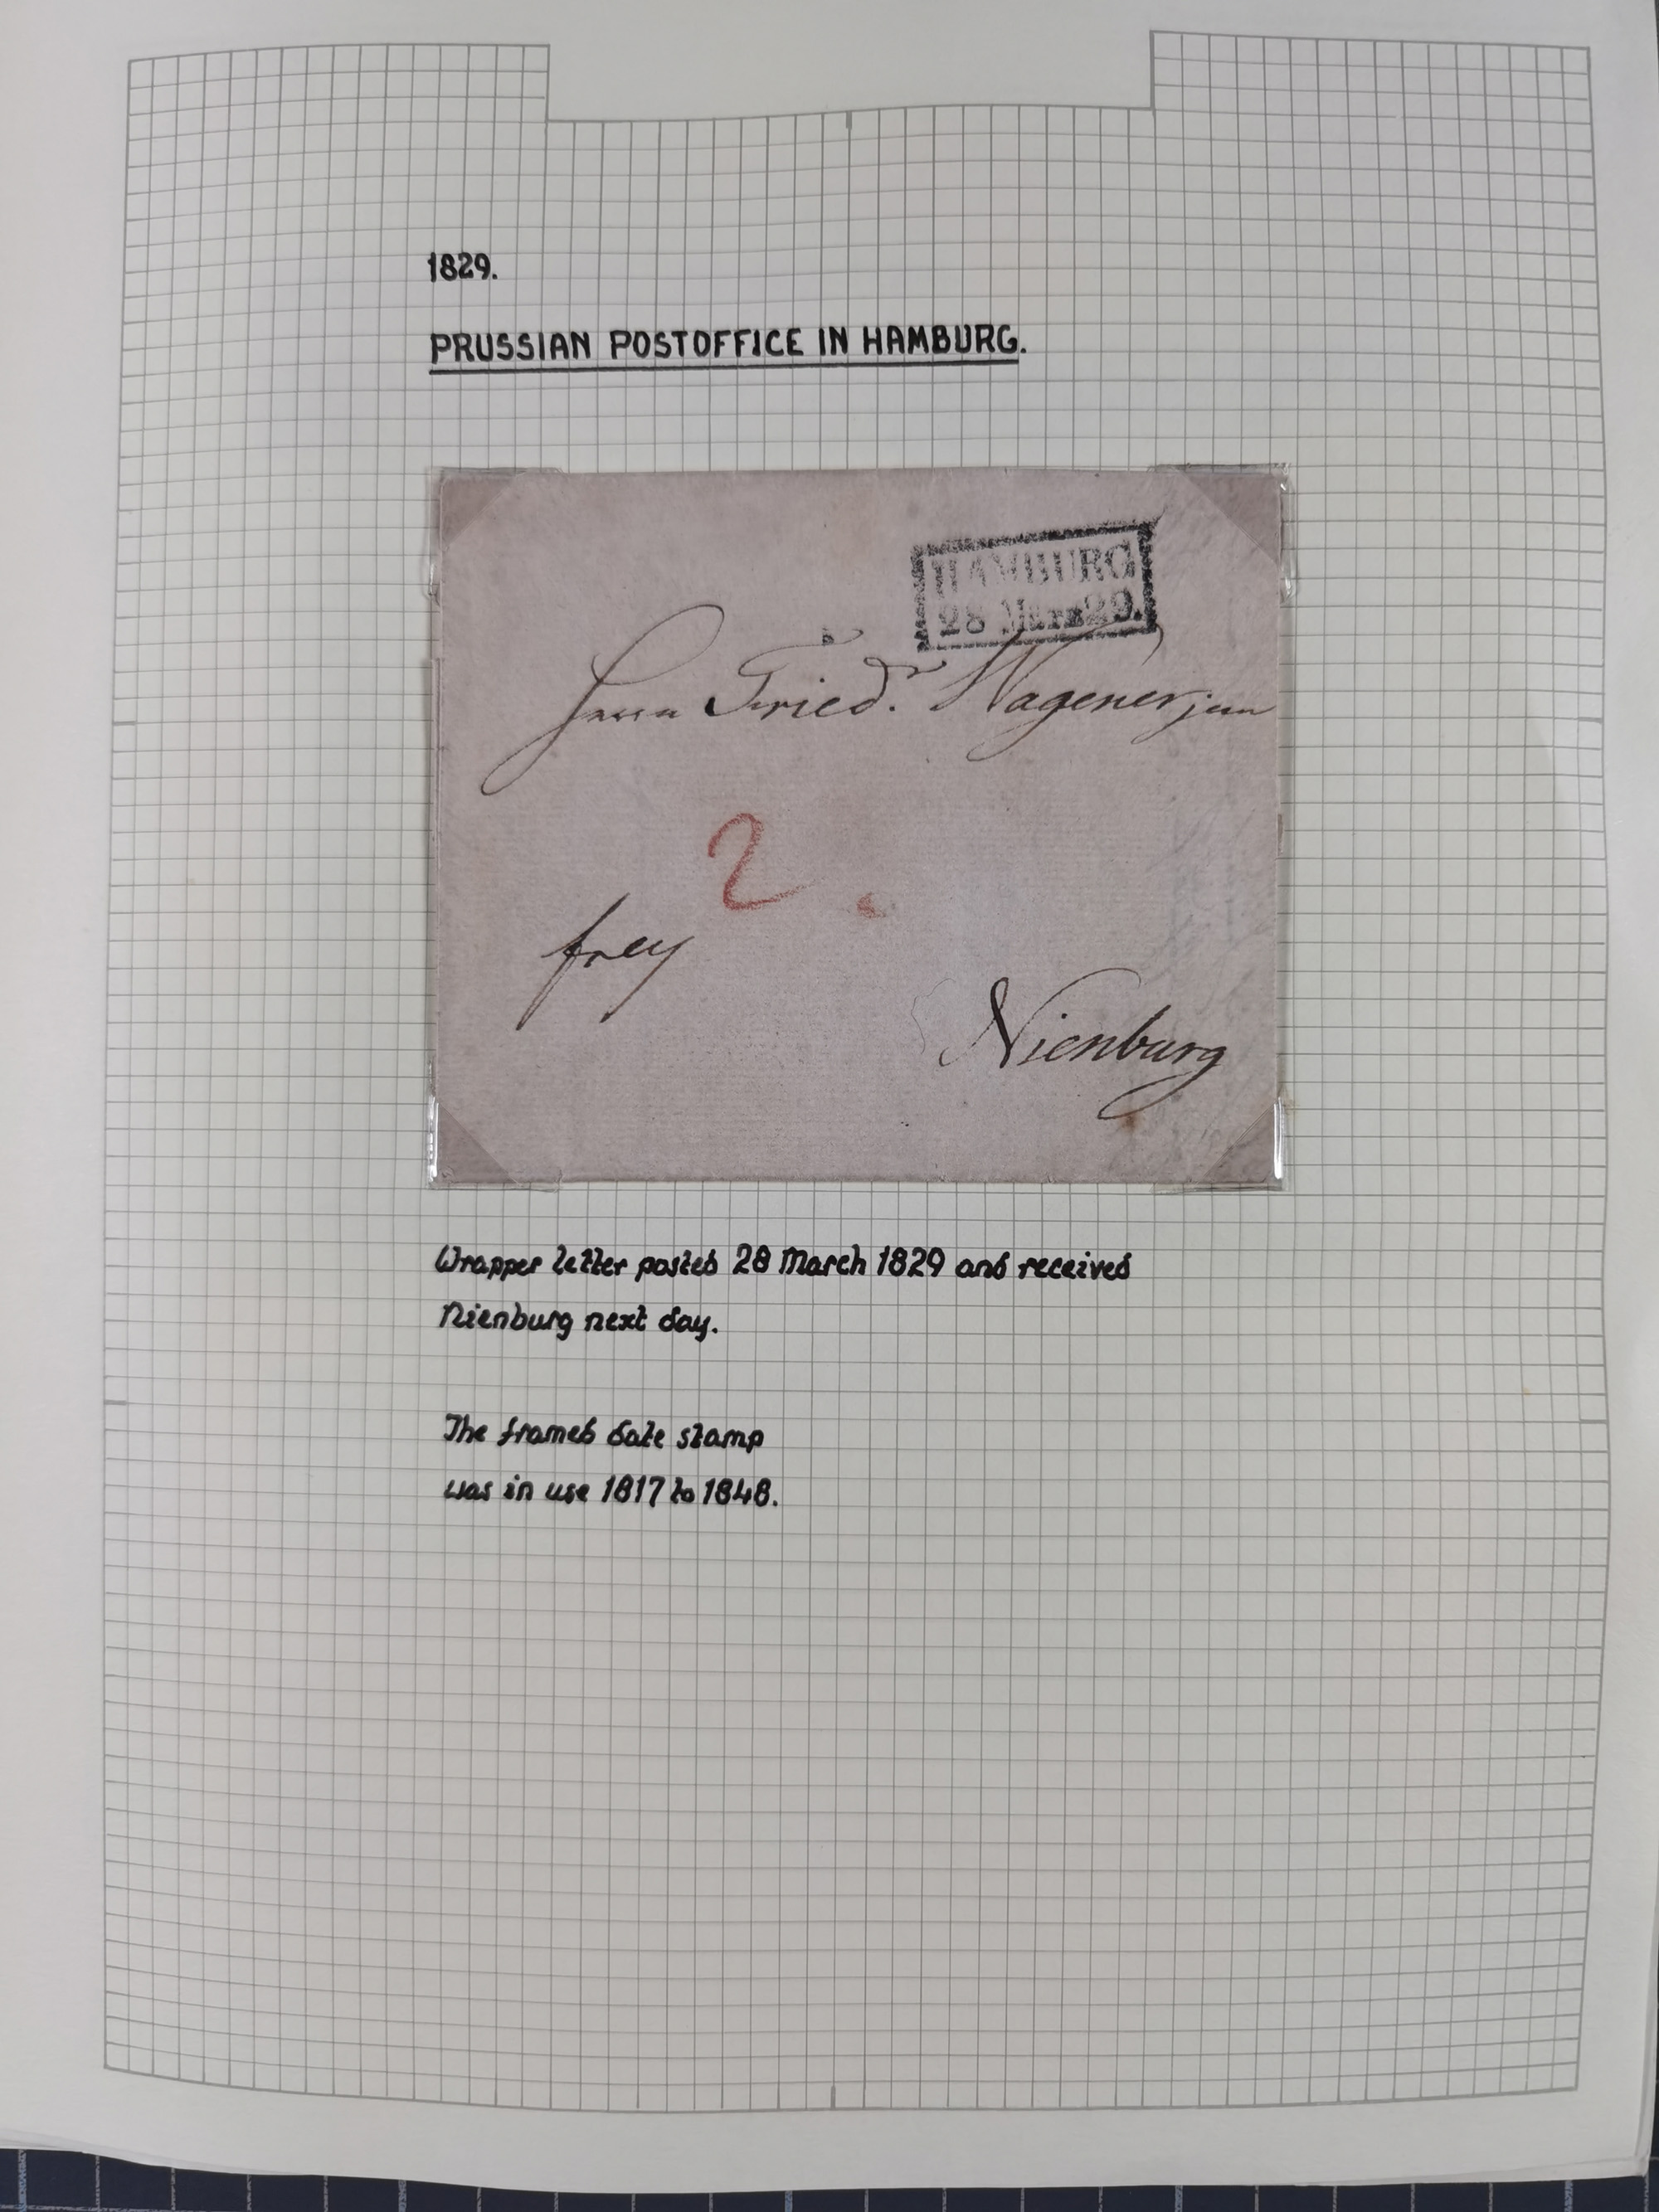 1829.
PRUSSIAN POSTOFFICE IN HAMBURG.
HAMBURG
28 März 29.
Herrn Fried.r Wagener jun
2
frey
Nienburg
Wrapper letter posted 28 March 1829 and received
Nienburg next day.
The framed date stamp
was in use 1817 to 1848.